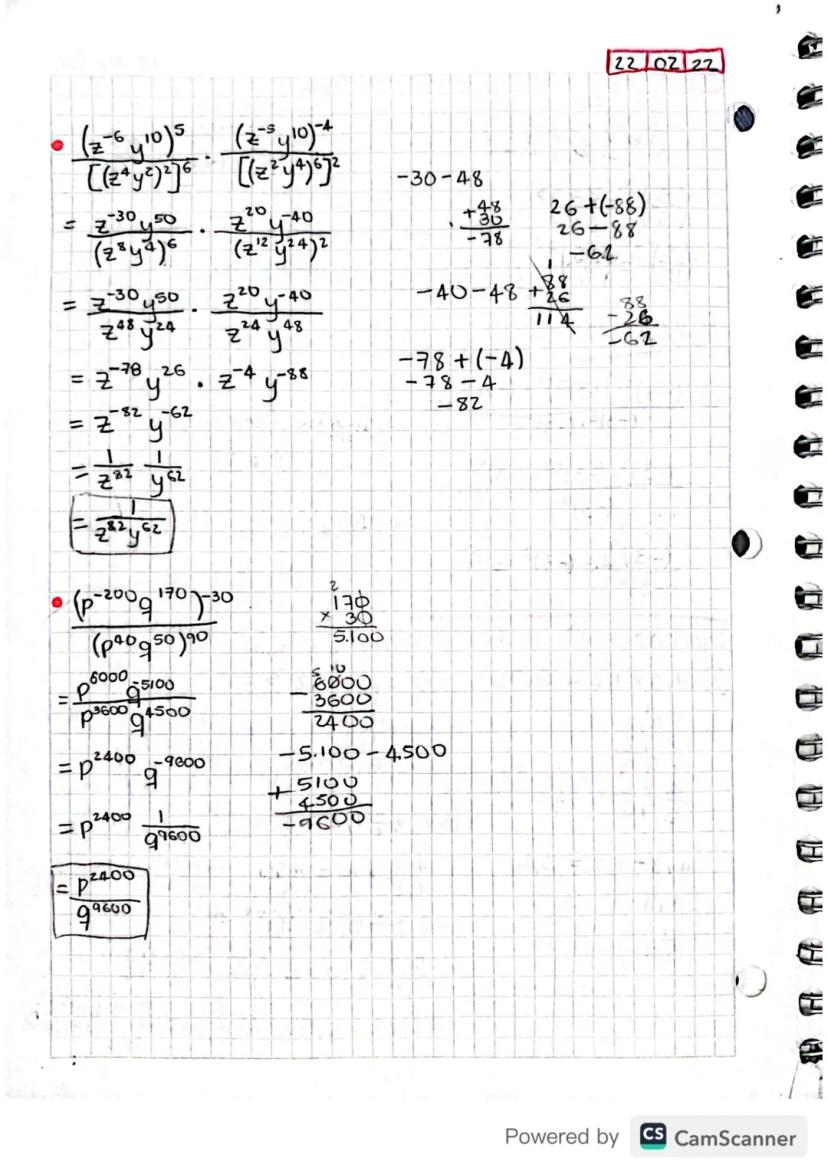 22 02 22
(z⁻⁶ y¹⁰)⁵ / [(z⁴y²)²]⁶ · (z⁻⁵ y¹⁰)⁻⁴ / [(z²y⁴)⁶]²
= z⁻³⁰y⁵⁰ / (z⁸y⁴)⁶ · z²⁰y⁻⁴⁰ / (z¹²y²⁴)²
= z⁻³⁰y⁵⁰ / z⁴⁸y²⁴ · z²⁰y⁻⁴⁰ / z²⁴y⁴⁸
= z⁻⁷⁸y²⁶ · z⁻⁴y⁻⁸⁸
= z⁻⁸²y⁻⁶²
= 1/z⁸² 1/y⁶²
= 1 / z⁸²y⁶²
-30-48
+48
30
-78
26+(-88)
26-88
-62
-40-48
1
+88
26
114
88
-26
-62
-78+(-4)
-78-4
-82
(p⁻²⁰⁰q¹⁷⁰)⁻³⁰ / (p⁴⁰q⁵⁰)⁹⁰
= p⁶⁰⁰⁰q⁻⁵¹⁰⁰ / p³⁶⁰⁰q⁴⁵⁰⁰
= p²⁴⁰⁰q⁻⁹⁶⁰⁰
= p²⁴⁰⁰ 1/q⁹⁶⁰⁰
= p²⁴⁰⁰ / q⁹⁶⁰⁰
2
170
× 30
5.100
5 10
-6000
3600
2400
-5.100-4.500
+5100
4500
-9600
Powered by CS CamScanner